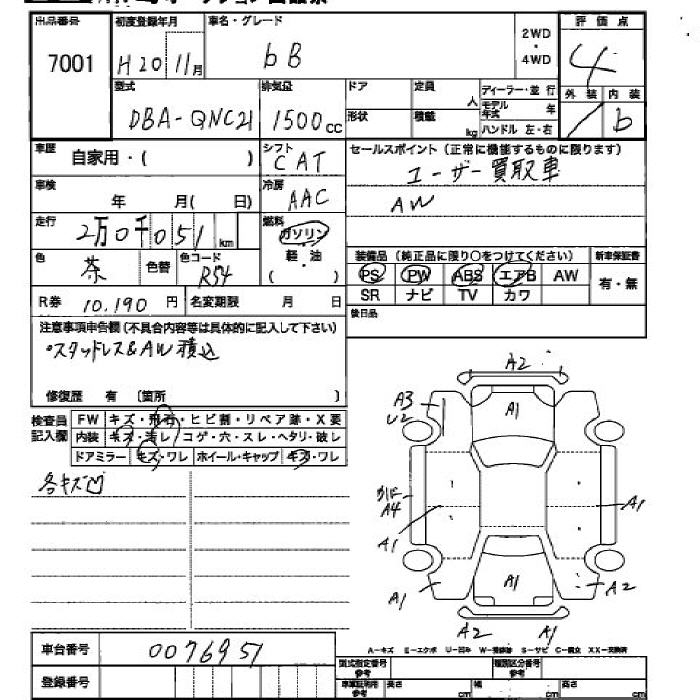 出品番号 初度登録年月 車名・グレード 評価点
7001 H20 11月 bB 2WD・4WD 4
型式 排気量 ドア 定員 人 ディーラー・並行 外装 内装
DBA-QNC21 1500cc 形状 積載 kg モデル年式 年 ハンドル 左・右 b
車歴 自家用・( ) シフト CAT セールスポイント(正常に機能するものに限ります)
ユーザー買取車
車検 年 月( 日) 冷房 AAC AW
走行 2万0千051km 燃料 ガソリン・軽・油 ( )
色 茶 色替 色コード R54
装備品(純正品に限り○をつけてください) 新車保証書
PS PW ABS エアB AW 有・無
SR ナビ TV カワ
R券 10.190円 名変期限 月 日 後日品
注意事項申告欄(不具合内容等は具体的に記入して下さい)
・スタッドレス&AW積込
修復歴 有 〔箇所 〕
検査員記入欄 FW キズ・飛石・ヒビ割・リペア跡・X要
内装 キズ・汚レ・コゲ・穴・スレ・ヘタリ・破レ
ドアミラー キズ・ワレ ホイール・キャップ キズ・ワレ
各キズ凹
A2
A3
U2
A1
A4
A1
A1
A1
A1
A2
A2
A1
A－キズ E－エクボ U－凹ミ W－補修跡 S－サビ C－腐食 XX－交換済
車台番号 0076951
登録番号
型式指定番号 参考 類別区分番号 参考
車車証利用 参考 長さ cm 幅 cm 高さ cm